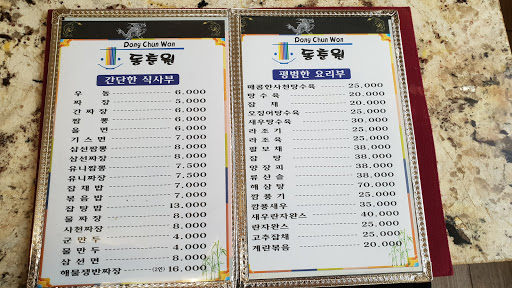 Dong Chun Won
동춘원
간단한 식사부
우 동 6,000
짜 장 5,000
간짜장 6,000
짬 뽕 6,000
울 면 6,000
기스면 7,000
삼선짬뽕 8,000
삼선짜장 8,000
유니짬뽕 7,500
유니짜장 7,500
잡채밥 7,000
볶음밥 7,000
잡탕밥 13,000
물짜장 8,000
사천짜장 8,000
군만두 4,000
물만두 4,000
삼선면 8,000
해물쟁반짜장 (2인) 16,000
Dong Chun Won
동춘원
평범한 요리부
매콤한사천탕수육 25,000
탕수육 20,000
잡 채 20,000
오징어탕수육 25,000
새우탕수육 30,000
라조기 25,000
라조육 25,000
팔보채 38,000
잡 탕 38,000
양장피 38,000
류산슬 38,000
해삼탕 70,000
깐풍기 25,000
깐풍새우 35,000
새우란자완스 40,000
란자완스 25,000
고추잡채 25,000
계란볶음 20,000